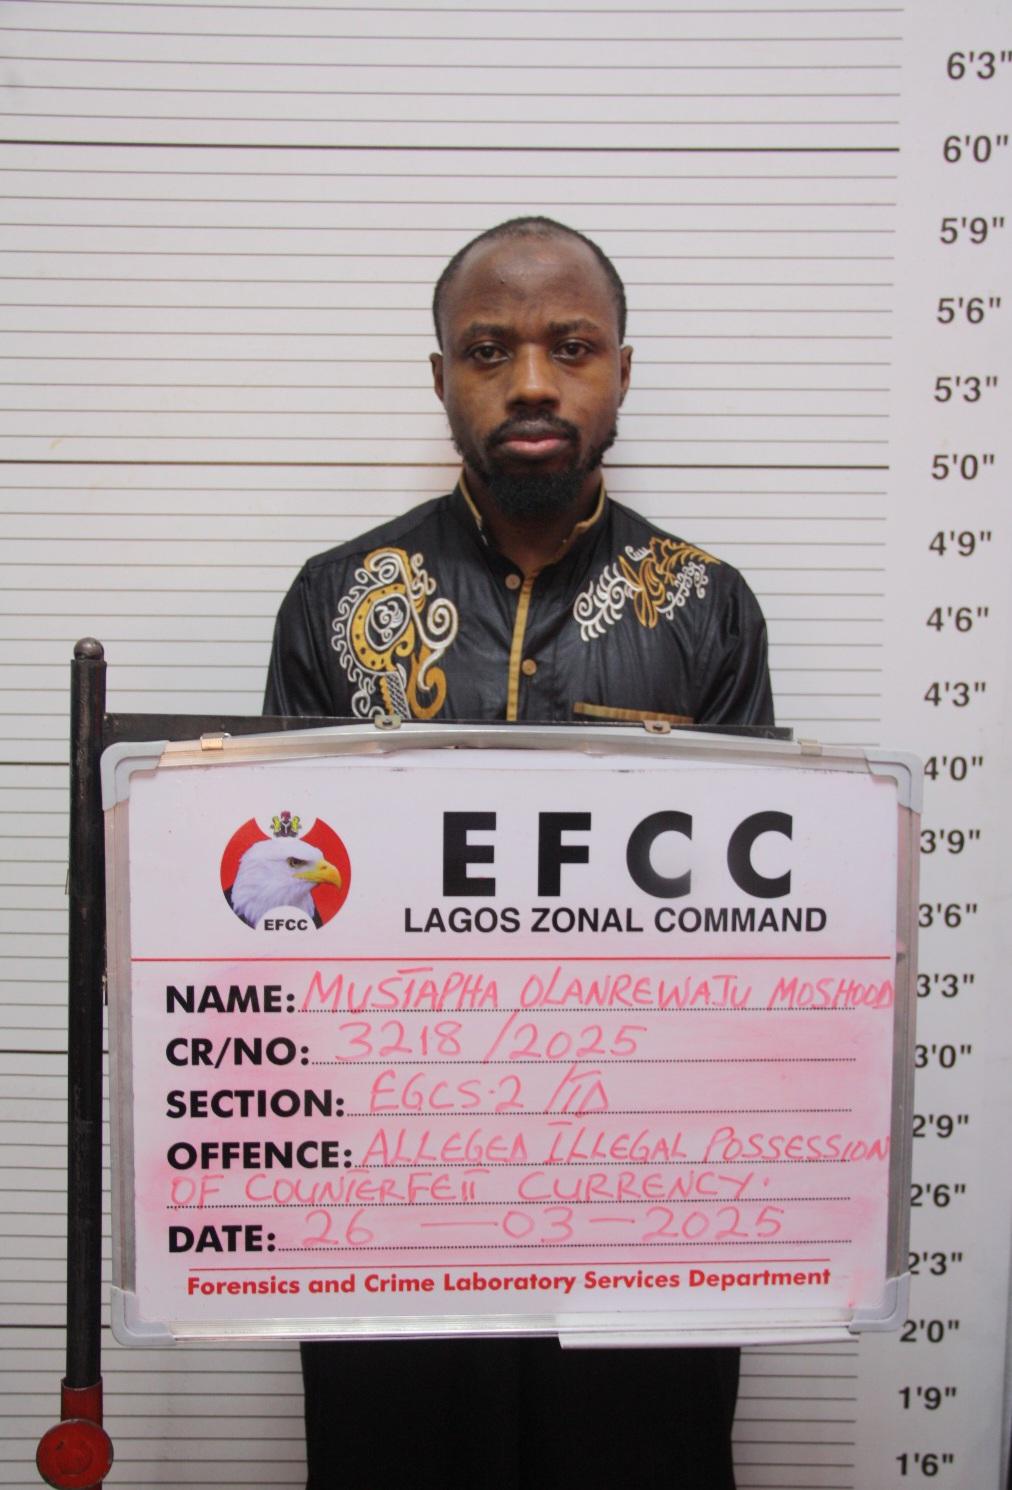 6'3"
6'0"
5'9"
5'6"
5'3"
5'0"
4'9"
4'6"
4'3"
4'0"
3'9"
3'6"
3'3"
3'0"
2'9"
2'6"
2'3"
2'0"
1'9"
1'6"
EFCC
EFCC
LAGOS ZONAL COMMAND
NAME: MUSTAPHA OLANREWAJU MOSHOOD
CR/NO: 3218/2025
SECTION: EGCS-2/TD
OFFENCE: ALLEGED ILLEGAL POSSESSION
OF COUNTERFEIT CURRENCY.
DATE: 26 — 03 — 2025
Forensics and Crime Laboratory Services Department